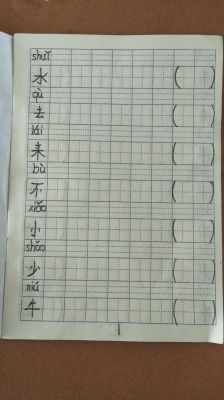 shuǐ
水 ( )
qù
去 ( )
lái
来 ( )
bù
不 ( )
xiǎo
小 ( )
shǎo
少 ( )
niú
牛 ( )